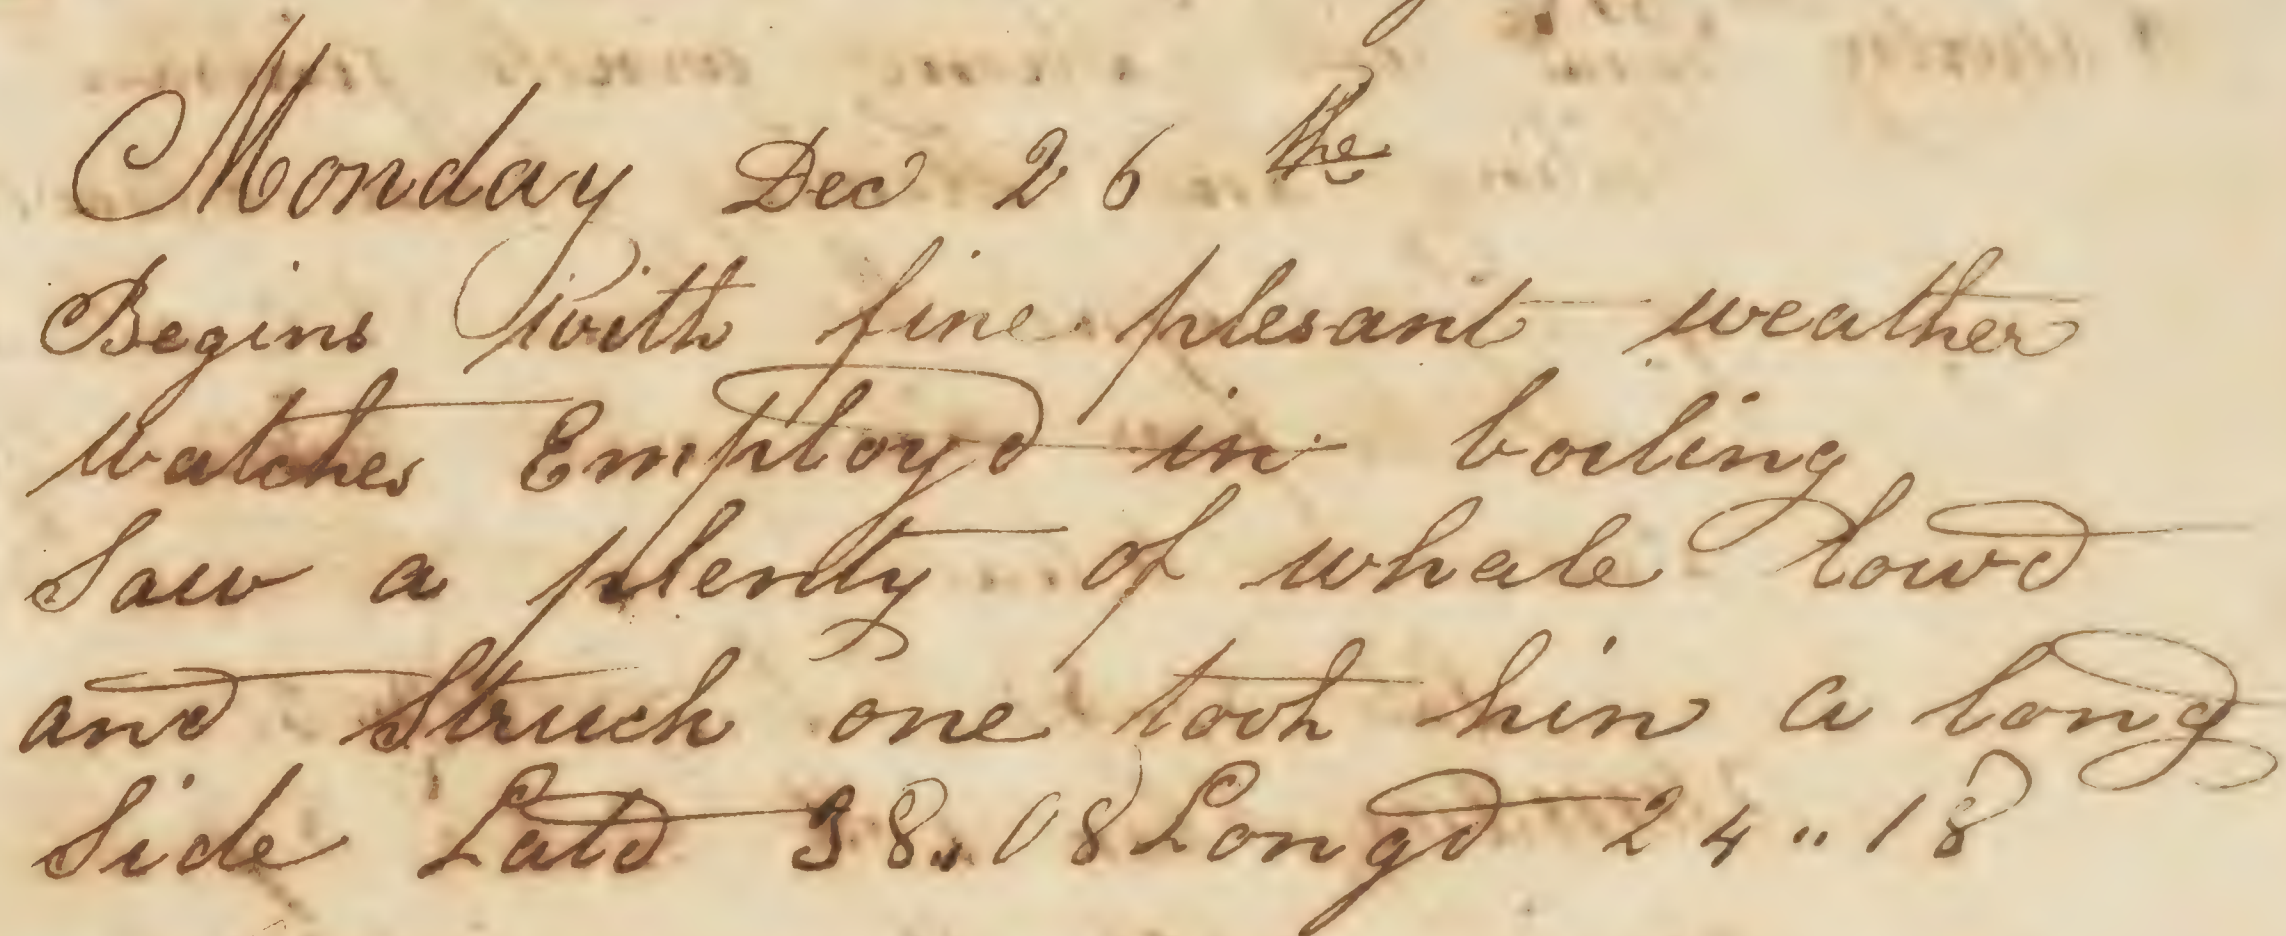 Monday Dec 26 the
Begins With fine plesant weather
Watches Employd in boiling
Saw a plenty of whale lowd
and Struck one took him a long
Side Latd 38..08 Longd 24..18